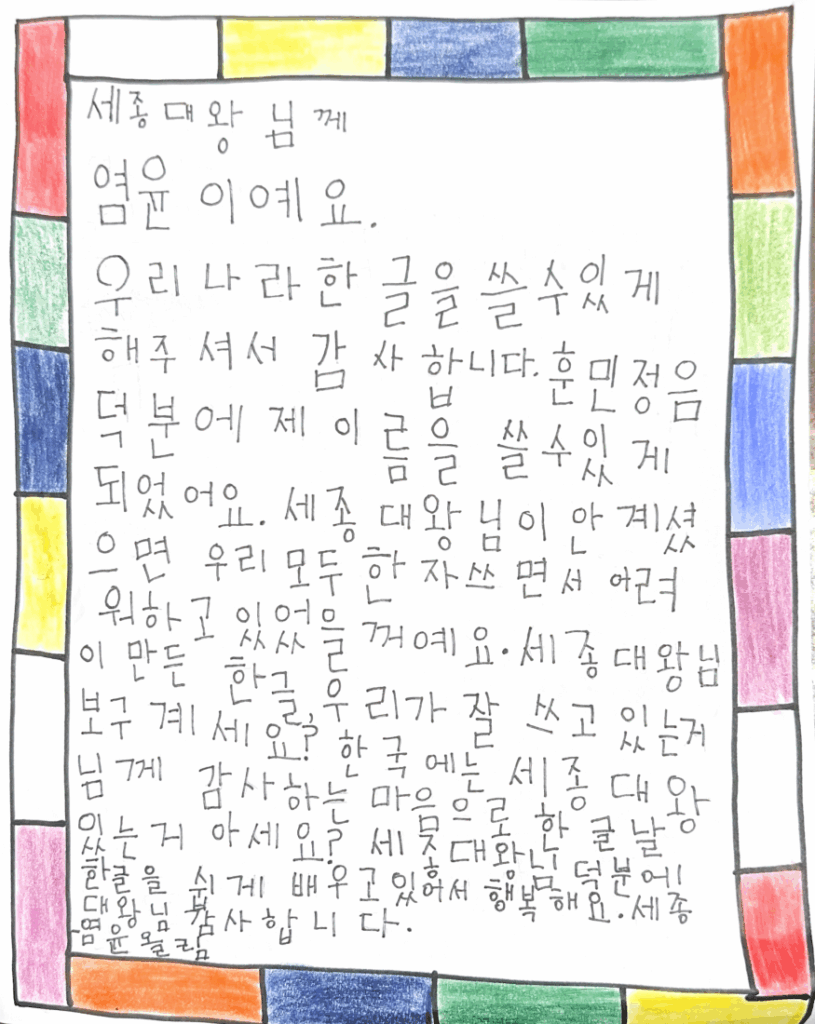 세종대왕님께
염윤이예요.
우리나라한글을 쓸수있게
해주셔서 감사합니다. 훈민정음
덕분에 제이름을 쓸수있게
되었어요. 세종대왕님이 안계셨
으면 우리모두한자쓰면서 어려
워하고 있었을꺼예요. 세종대왕님
이 만든 한글, 우리가 잘 쓰고 있는거
보구계세요? 한국에는 세종대왕
님께 감사하는 마음으로 한글날
있는거 아세요? 세종대왕님 덕분에
한글을 쉽게 배우고있어서 행복해요. 세종
대왕님 감사합니다.
염윤올림